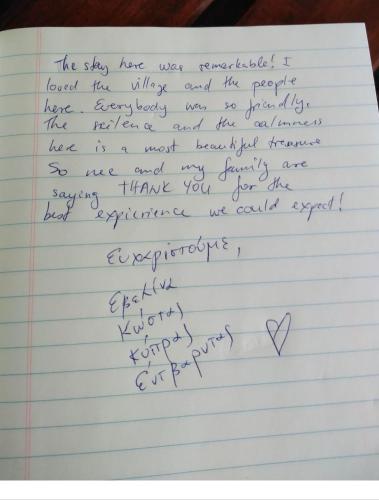 The stay here was remarkable! I
loved the village and the people
here. Everybody was so friendly.
The scilence and the calmness
here is a most beautiful treasure
So mee and my family are
saying THANK YOU for the
best expicrience we could expect!
Ευχαριστούμε,
Εβελίνα
Κώστας
Κύπρας
Έντβαρντας